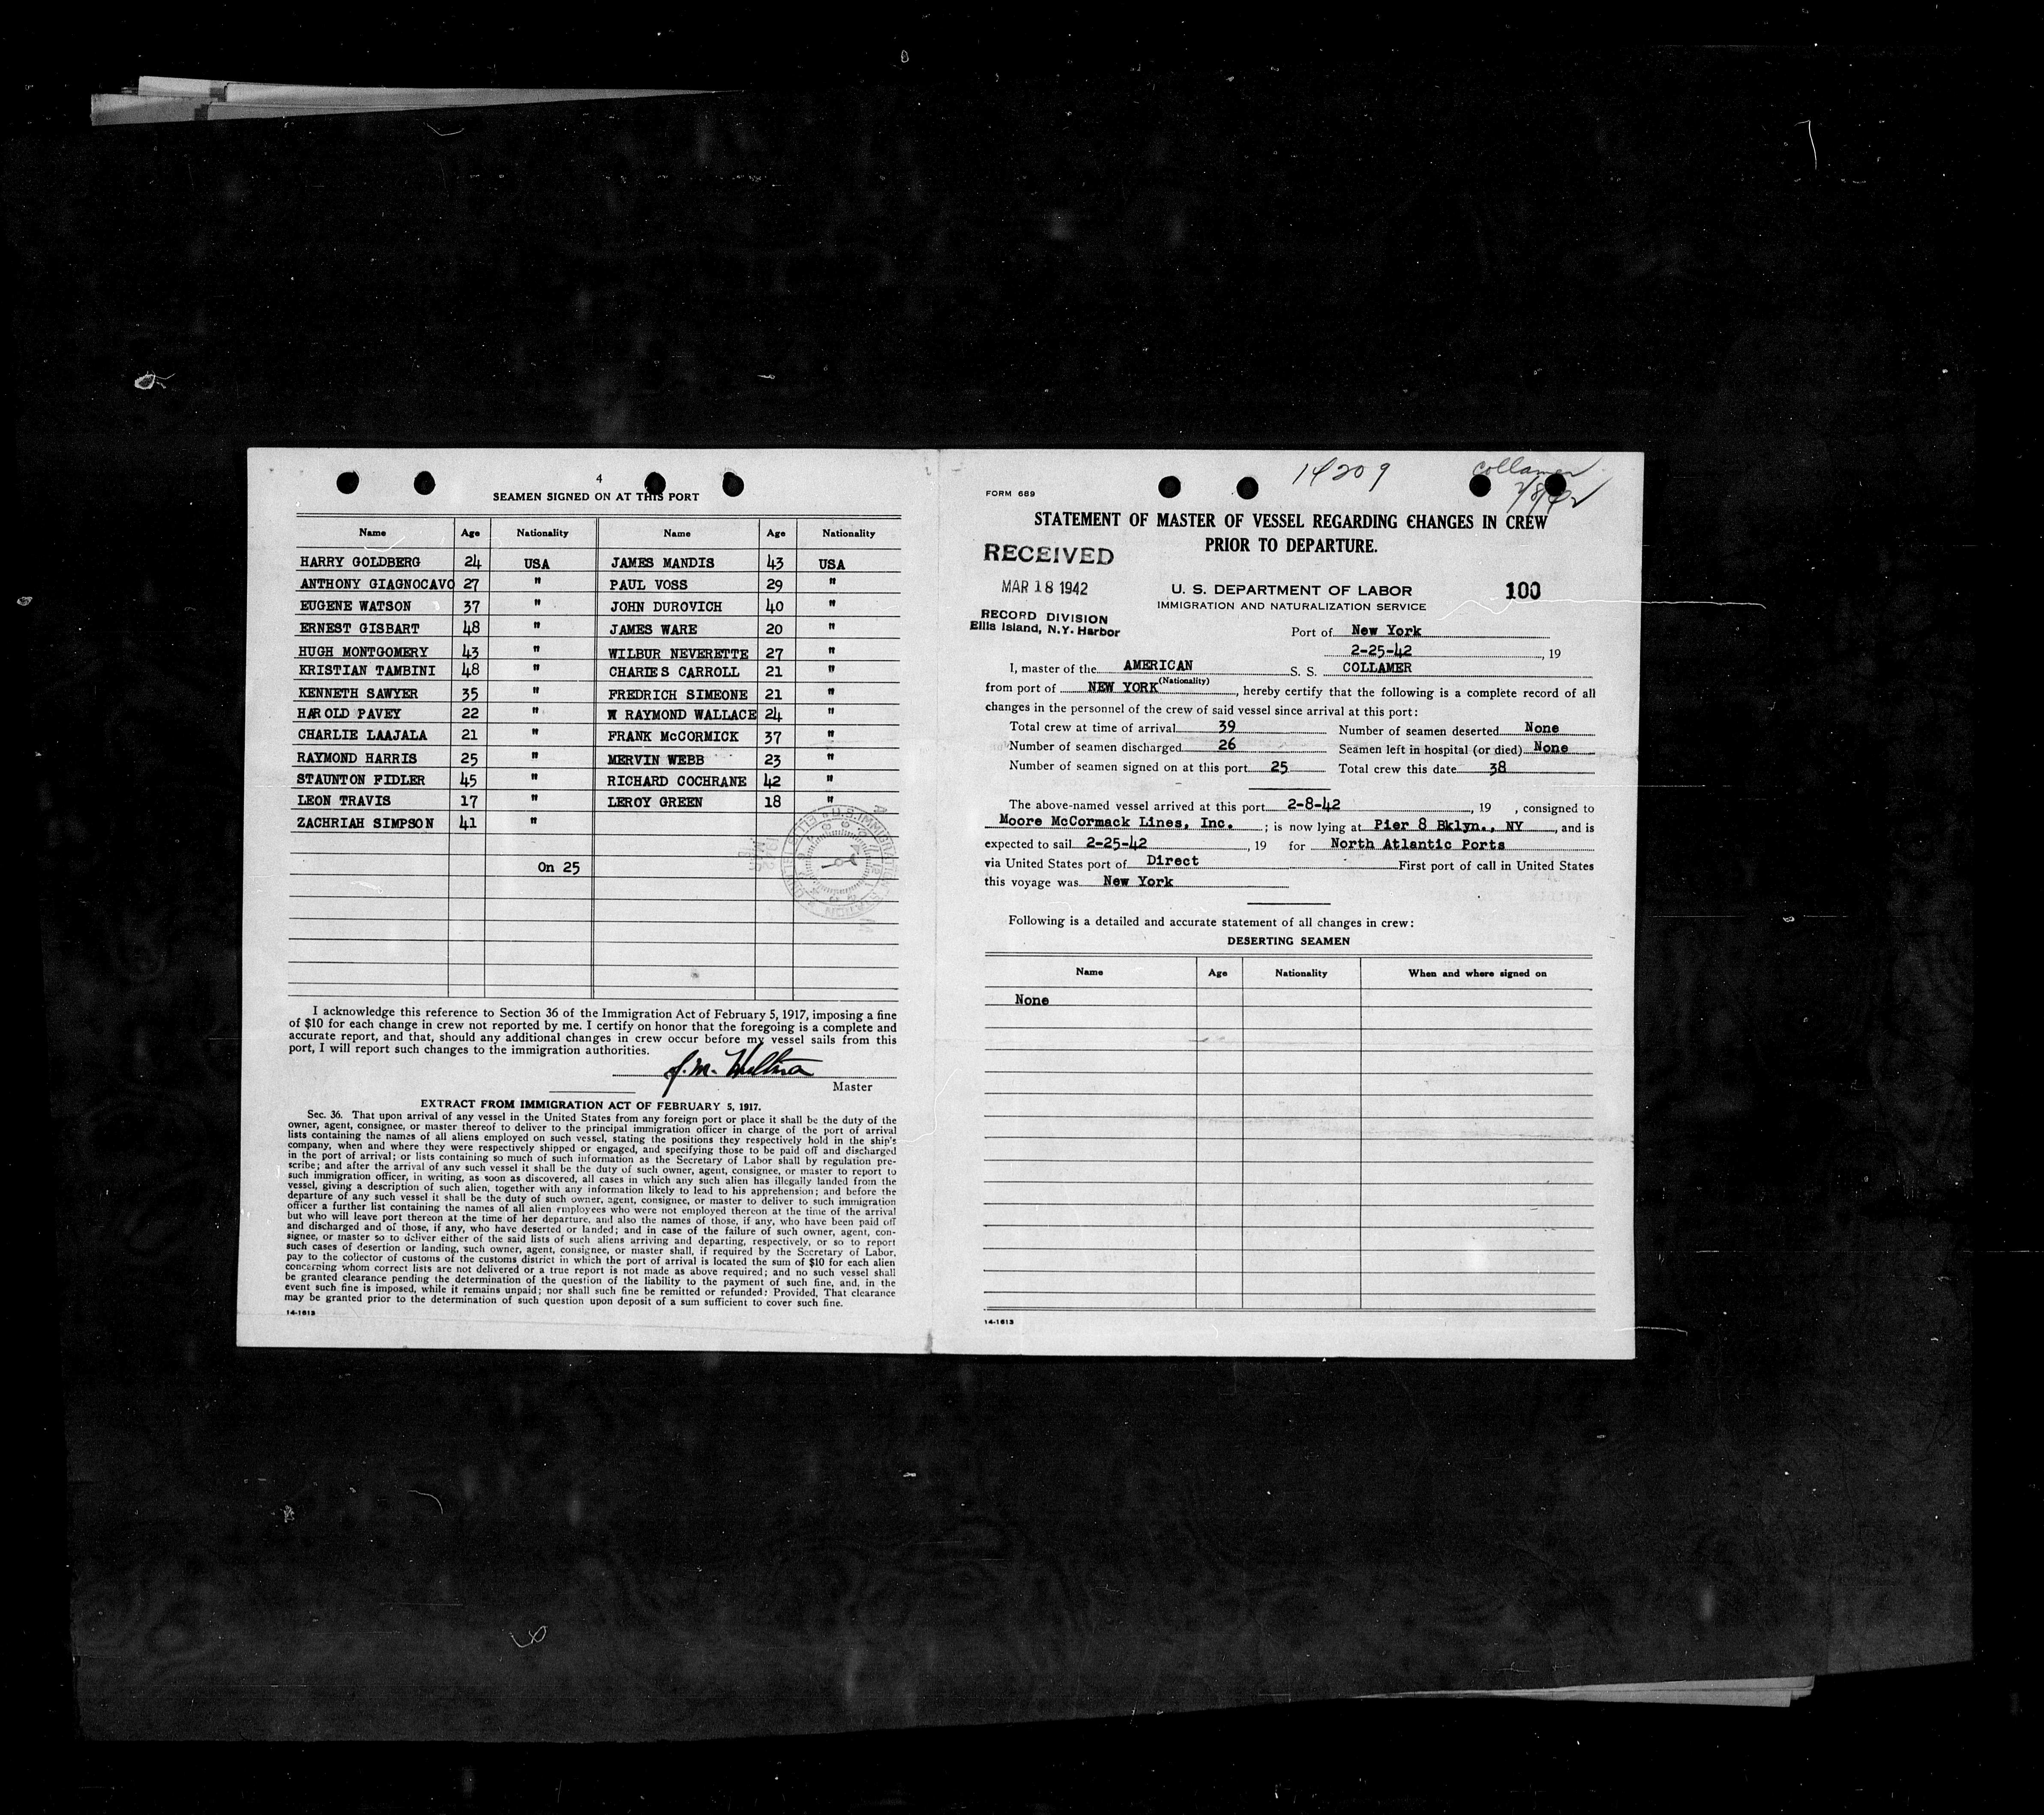 4
SEAMEN SIGNED ON AT THIS PORT
Name Age Nationality Name Age Nationality
HARRY GOLDBERG 24 USA JAMES MANDIS 43 USA
ANTHONY GIAGNOCAVO 27 " PAUL VOSS 29 "
EUGENE WATSON 37 " JOHN DUROVICH 40 "
ERNEST GISBART 48 " JAMES WARE 20 "
HUGH MONTGOMERY 43 " WILBUR NEVERETTE 27 "
KRISTIAN TAMBINI 48 " CHARLES CARROLL 21 "
KENNETH SAWYER 35 " FREDRICH SIMEONE 21 "
HAROLD PAVEY 22 " W RAYMOND WALLACE 24 "
CHARLIE LAAJALA 21 " FRANK McCORMICK 37 "
RAYMOND HARRIS 25 " MERVIN WEBB 23 "
STAUNTON FIDLER 45 " RICHARD COCHRANE 42 "
LEON TRAVIS 17 " LEROY GREEN 18 "
ZACHRIAH SIMPSON 41 "
On 25
I acknowledge this reference to Section 36 of the Immigration Act of February 5, 1917, imposing a fine
of $10 for each change in crew not reported by me. I certify on honor that the foregoing is a complete and
accurate report, and that, should any additional changes in crew occur before my vessel sails from this
port, I will report such changes to the immigration authorities.
Master
EXTRACT FROM IMMIGRATION ACT OF FEBRUARY 5, 1917.
Sec. 36. That upon arrival of any vessel in the United States from any foreign port or place it shall be the duty of the
owner, agent, consignee, or master thereof to deliver to the principal immigration officer in charge of the port of arrival
lists containing the names of all aliens employed on such vessel, stating the positions they respectively hold in the ship's
company, when and where they were respectively shipped or engaged, and specifying those to be paid off and discharged
in the port of arrival; or lists containing so much of such information as the Secretary of Labor shall by regulation pre-
scribe; and after the arrival of any such vessel it shall be the duty of such owner, agent, consignee, or master to report to
such immigration officer, in writing, as soon as discovered, all cases in which any such alien has illegally landed from the
vessel, giving a description of such alien, together with any information likely to lead to his apprehension; and before the
departure of any such vessel it shall be the duty of such owner, agent, consignee, or master to deliver to such immigration
officer a further list containing the names of all alien employees who were not employed thereon at the time of the arrival
but who will leave port thereon at the time of her departure, and also the names of those, if any, who have been paid off
and discharged and of those, if any, who have deserted or landed; and in case of the failure of such owner, agent, con-
signee, or master so to deliver either of the said lists of such aliens arriving and departing, respectively, or so to report
such cases of desertion or landing, such owner, agent, consignee, or master shall, if required by the Secretary of Labor,
pay to the collector of customs of the customs district in which the port of arrival is located the sum of $10 for each alien
concerning whom correct lists are not delivered or a true report is not made as above required; and no such vessel shall
be granted clearance pending the determination of the question of the liability to the payment of such fine, and, in the
event such fine is imposed, while it remains unpaid; nor shall such fine be remitted or refunded: Provided, That clearance
may be granted prior to the determination of such question upon deposit of a sum sufficient to cover such fine.
14-1613
14209
Collamer
2/8/42
FORM 689
STATEMENT OF MASTER OF VESSEL REGARDING CHANGES IN CREW
PRIOR TO DEPARTURE.
RECEIVED
MAR 18 1942
RECORD DIVISION
Ellis Island, N.Y. Harbor
U. S. DEPARTMENT OF LABOR
IMMIGRATION AND NATURALIZATION SERVICE
100
Port of New York
2-25-42, 19
I, master of the AMERICAN S. S. COLLAMER
(Nationality)
from port of NEW YORK, hereby certify that the following is a complete record of all
changes in the personnel of the crew of said vessel since arrival at this port:
Total crew at time of arrival 39 Number of seamen deserted None
Number of seamen discharged 26 Seamen left in hospital (or died) None
Number of seamen signed on at this port 25 Total crew this date 38
The above-named vessel arrived at this port 2-8-42, 19 , consigned to
Moore McCormack Lines, Inc. ; is now lying at Pier 8 Bklyn., NY, and is
expected to sail 2-25-42, 19 for North Atlantic Ports
via United States port of Direct First port of call in United States
this voyage was New York
Following is a detailed and accurate statement of all changes in crew:
DESERTING SEAMEN
Name Age Nationality When and where signed on
None
14-1613